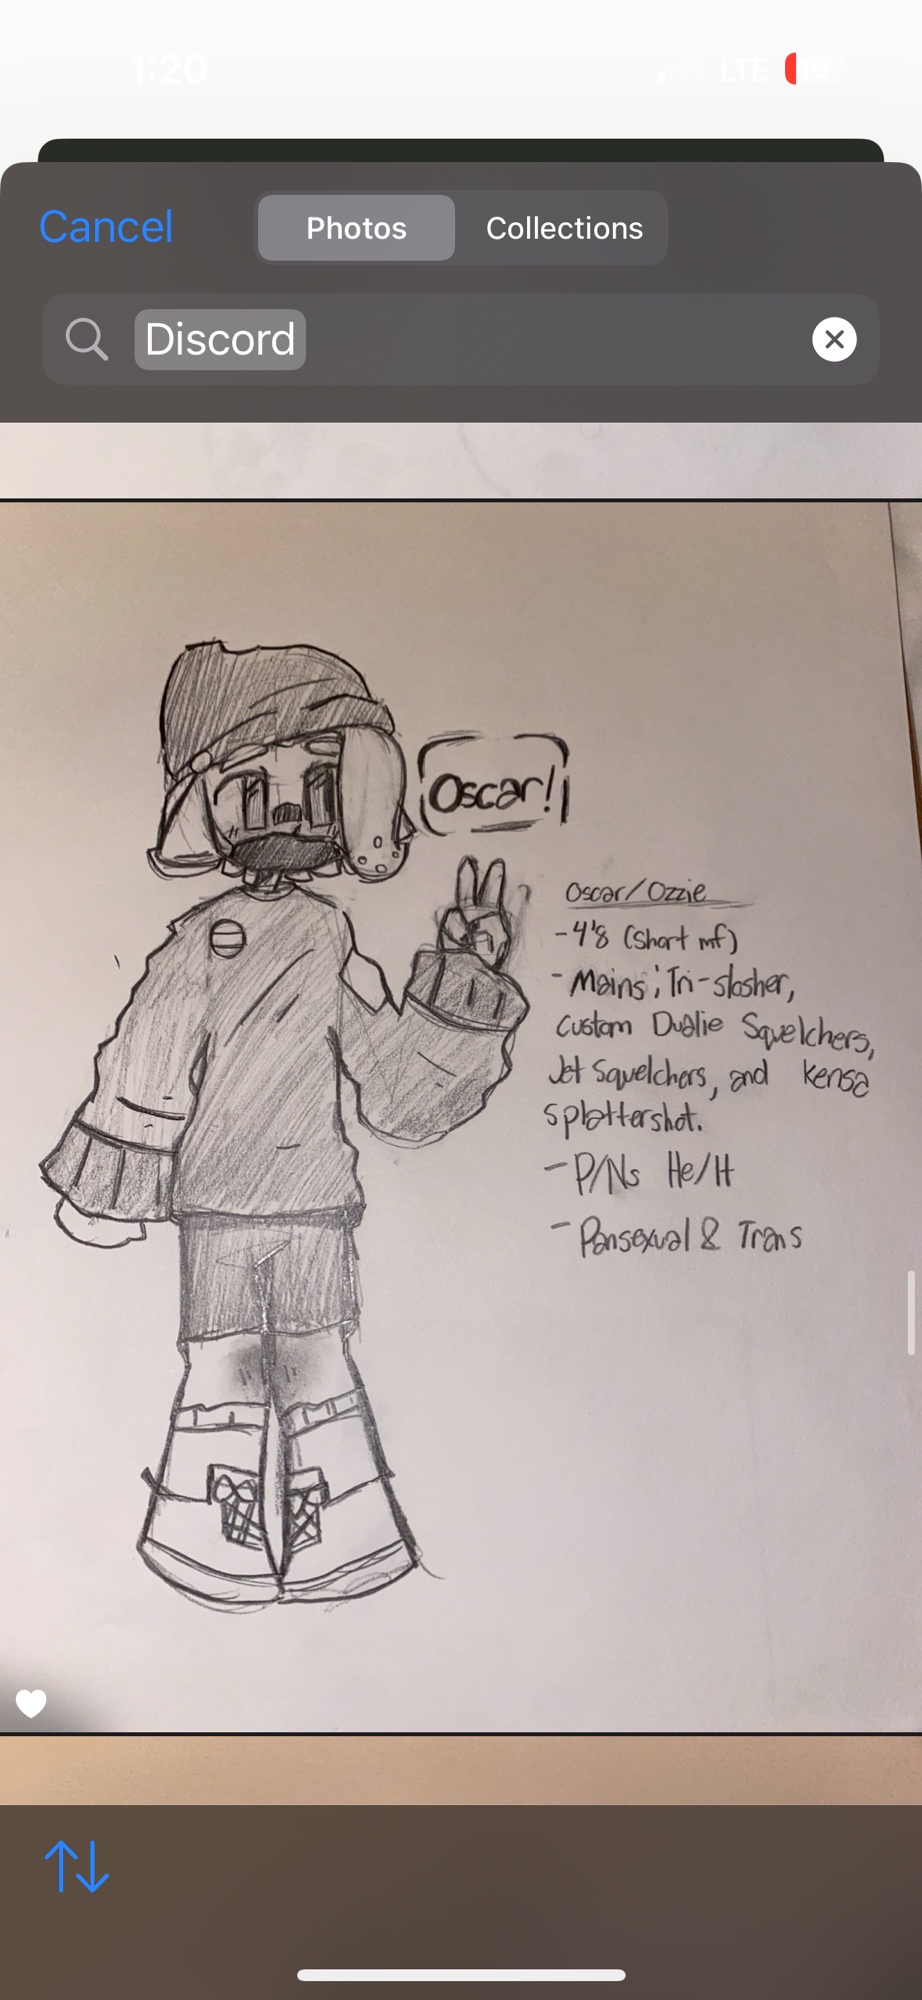 1:20
LTE 19
Cancel
Photos
Collections
Discord
Oscar!
Oscar/Ozzie
-4'8 (Short mf)
- Mains; Tri-slosher,
Custom Dualie Squelchers,
Jet Squelchers, and Kensa
Splattershot.
- P/Ns He/It
- Pansexual & Trans